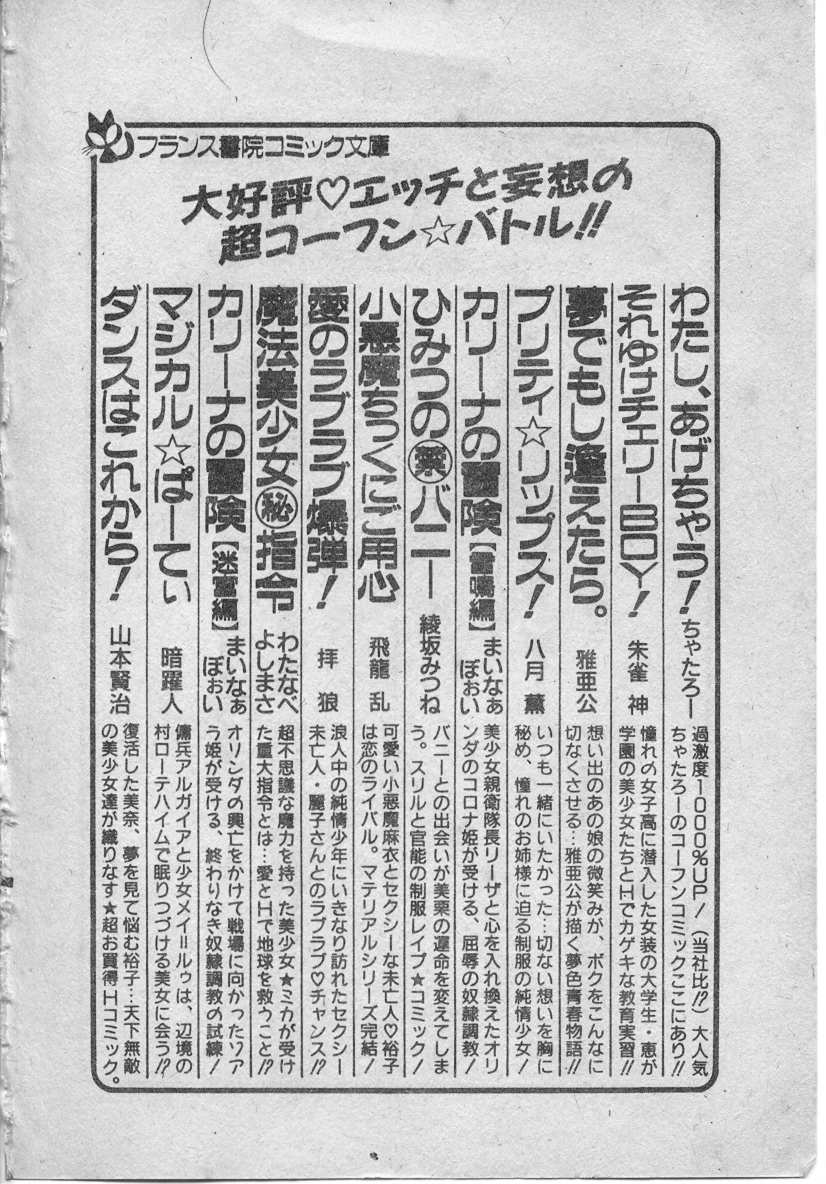 フランス書院コミック文庫
大好評♡エッチと妄想の
超コーフン☆バトル!!
わたし、あげちゃう！ ちゃたろー
過激度1000%UP！（当社比!?）大人気
ちゃたろーのコーフンコミックここにあり!!
それゆけチェリーBOY！ 朱雀 神
憧れの女子高に潜入した女装の大学生・恵が
学園の美少女たちとHでカゲキな教育実習!!
夢でもし逢えたら。 雅亜公
想い出のあの娘の微笑みが、ボクをこんなに
切なくさせる…雅亜公が描く夢色青春物語!!
プリティ☆リップス！ 八月 薫
いつも一緒にいたかった…切ない想いを胸に
秘め、憧れのお姉様に迫る制服の純情少女！
カリーナの冒険【雷鳴編】 まいなぁぼぉい
美少女親衛隊長リーザと心を入れ換えたオリ
ンダのコロナ姫が受ける、屈辱の奴隷調教！
ひみつの㊙バニー 綾坂みつね
バニーとの出会いが美栗の運命を変えてしま
う。スリルと官能の制服レイプ★コミック！
小悪魔ちっくにご用心 飛龍 乱
可愛い小悪魔麻衣とセクシーな未亡人♡裕子
は恋のライバル。マテリアルシリーズ完結！
愛のラブラブ爆弾！ 拝 狼
浪人中の純情少年にいきなり訪れたセクシー
未亡人・麗子さんとのラブラブ♡チャンス!?
魔法美少女㊙指令 わたなべよしまさ
超不思議な魔力を持った美少女★ミカが受け
た重大指令とは…愛とHで地球を救うこと!?
カリーナの冒険【迷宮編】 まいなぁぼぉい
オリンダの興亡をかけて戦場に向かったソア
ラ姫が受ける、終わりなき奴隷調教の試練！
マジカル☆ぱーてぃ 暗躍人
傭兵アルガイアと少女メイ＝ルゥは、辺境の
村ローテハイムで眠りつづける美女に会う!?
ダンスはこれから！ 山本賢治
復活した美奈、夢を見て悩む裕子…天下無敵
の美少女達が織りなす★超お買得Hコミック。